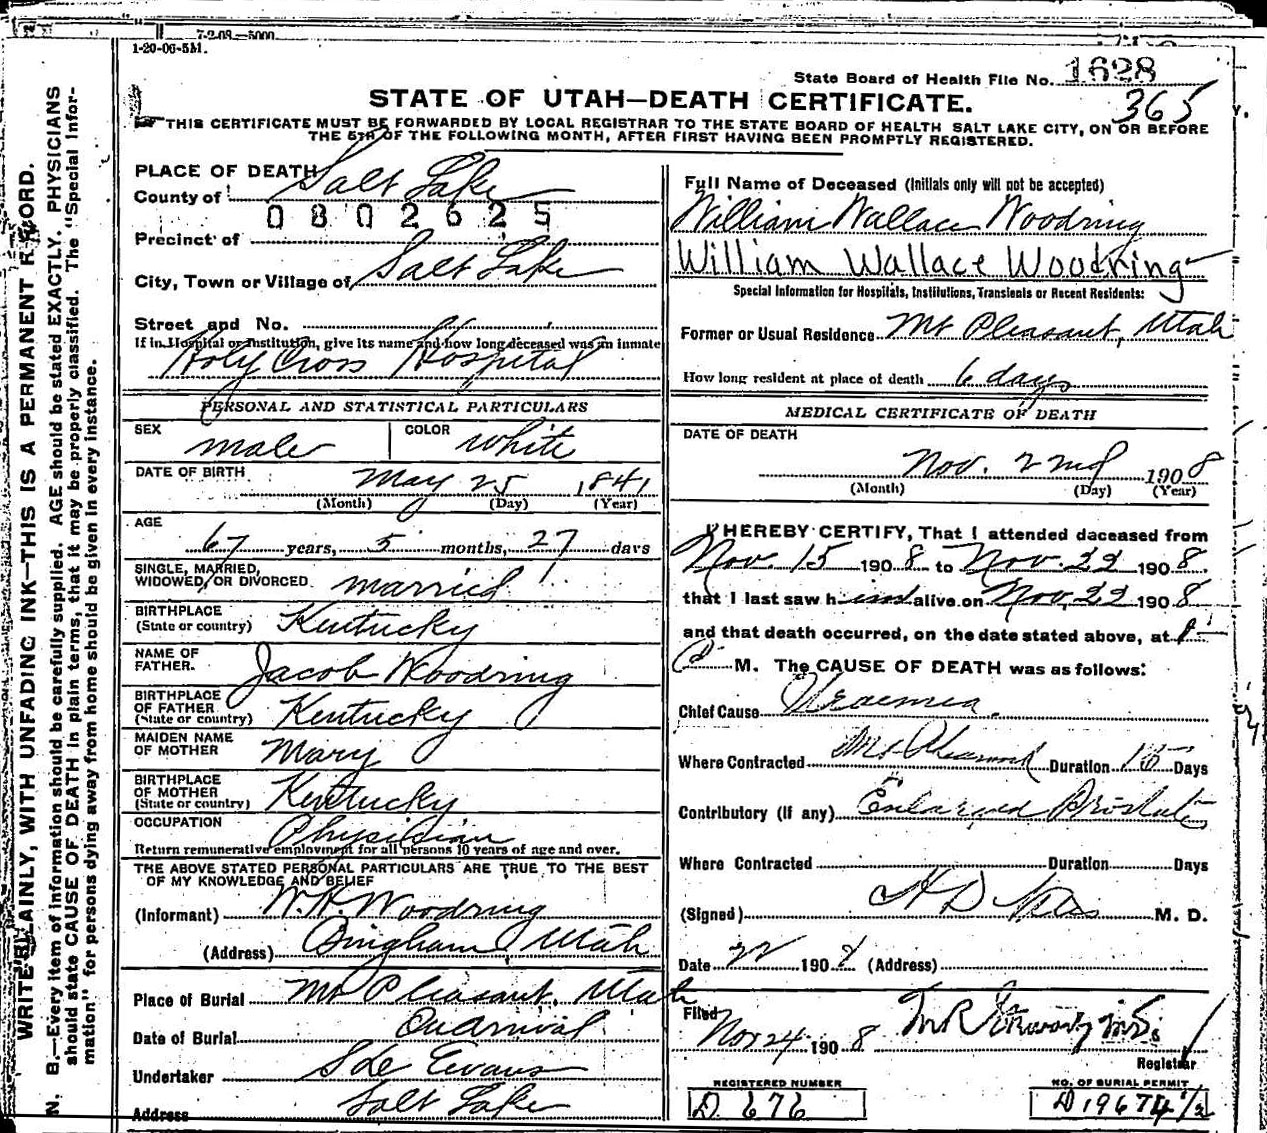 7-2-08—5000
1-20-06-5M.
State Board of Health File No. 1628
365
STATE OF UTAH—DEATH CERTIFICATE.
THIS CERTIFICATE MUST BE FORWARDED BY LOCAL REGISTRAR TO THE STATE BOARD OF HEALTH SALT LAKE CITY, ON OR BEFORE
THE 5TH OF THE FOLLOWING MONTH, AFTER FIRST HAVING BEEN PROMPTLY REGISTERED.
WRITE PLAINLY, WITH UNFADING INK—THIS IS A PERMANENT RECORD.
N. B.—Every item of information should be carefully supplied. AGE should be stated EXACTLY. PHYSICIANS
should state CAUSE OF DEATH in plain terms, that it may be properly classified. The "Special Infor-
mation" for persons dying away from home should be given in every instance.
PLACE OF DEATH
County of Salt Lake
0802625
Precinct of
City, Town or Village of Salt Lake
Street and No.
If in Hospital or Institution, give its name and how long deceased was an inmate
Holy Cross Hospital
PERSONAL AND STATISTICAL PARTICULARS
SEX male COLOR white
DATE OF BIRTH May 25 1841
(Month) (Day) (Year)
AGE
67 years, 5 months, 27 days
SINGLE, MARRIED,
WIDOWED, OR DIVORCED. married
BIRTHPLACE
(State or country) Kentucky
NAME OF
FATHER. Jacob Woodring
BIRTHPLACE
OF FATHER
(State or country) Kentucky
MAIDEN NAME
OF MOTHER Mary
BIRTHPLACE
OF MOTHER
(State or country) Kentucky
OCCUPATION Physician
Return remunerative employment for all persons 10 years of age and over.
THE ABOVE STATED PERSONAL PARTICULARS ARE TRUE TO THE BEST
OF MY KNOWLEDGE AND BELIEF
(Informant) W.H. Woodring
(Address) Bingham, Utah
Place of Burial Mt Pleasant, Utah
Date of Burial On Arrival
Undertaker S De Evans
Address Salt Lake
Full Name of Deceased (Initials only will not be accepted)
William Wallace Woodring
William Wallace Woodring
Special Information for Hospitals, Institutions, Transients or Recent Residents:
Former or Usual Residence Mt Pleasant, Utah
How long resident at place of death 6 days
MEDICAL CERTIFICATE OF DEATH
DATE OF DEATH
Nov. 22nd 1908
(Month) (Day) (Year)
I HEREBY CERTIFY, That I attended daceased from
Nov. 15 1908 to Nov. 22 1908.
that I last saw him alive on Nov. 22 1908
and that death occurred, on the date stated above, at
M. The CAUSE OF DEATH was as follows:
Chief Cause Uraemia.
Where Contracted Mt Pleasant Duration 15 Days
Contributory (if any) Enlarged Prostate
Where Contracted Duration Days
(Signed) M. D.
Date 22 190 (Address)
Filed
Nov 24 1908
Registrar
REGISTERED NUMBER
D. 676
NO. OF BURIAL PERMIT
D 19674 1/2